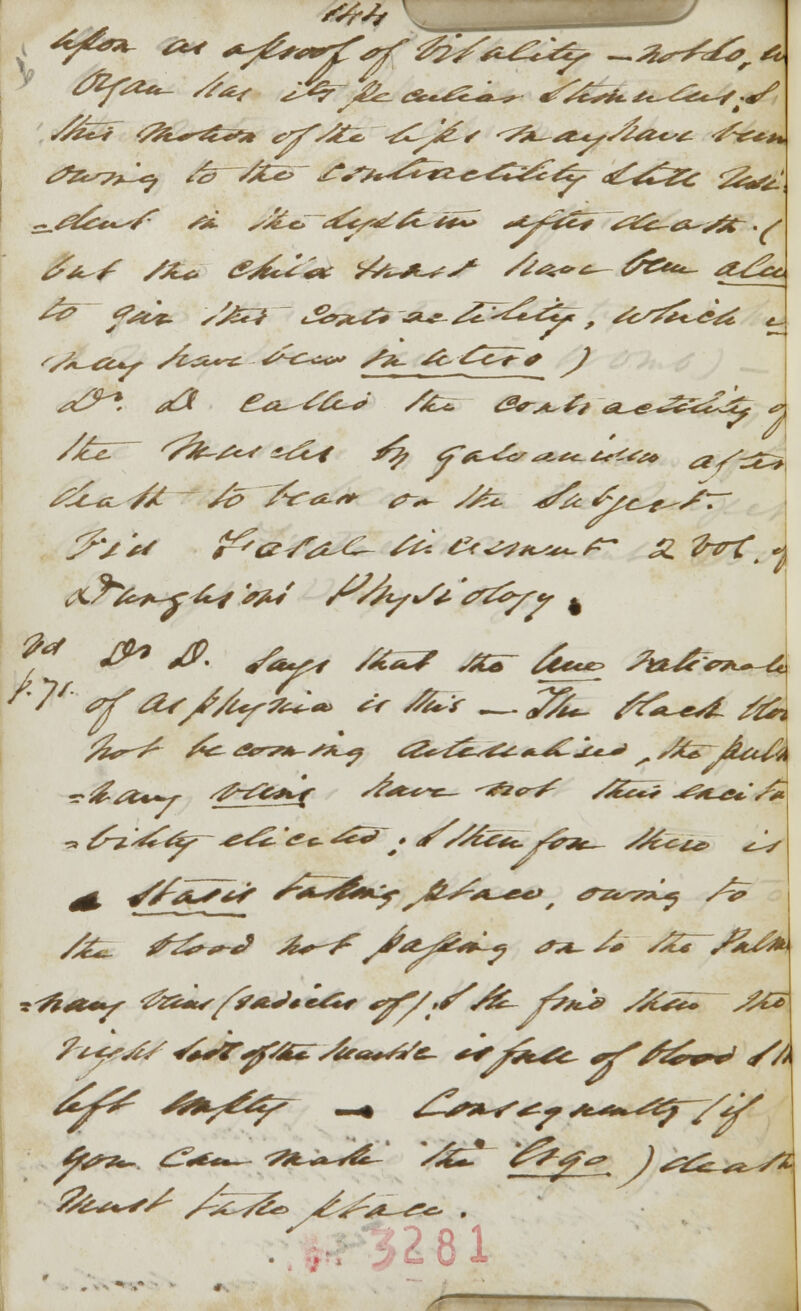 144
upon as a proof of Vitality – not so,
Organ has its peculiar Stimulus; &
this motion of the lips may have been
owing to the Contractility still resi:
=dent in the System after death. (
but the child must have been alive
to give this Contractility, which
may have been in utero )
Dr. D called the contractility of
the Muscles by galvanism after
death to bear on the Subject.
Vid Foetal 2 Vol. of
Dunglison's Physiology.
Vd p. 71. Dr D. says that the true rationale
of Asphyxia is this – The black bloo
not becoming arterialised, the pulm
=nary veins have not their excita
=bility elicited; & therefore there is
a Stasis taking place, owing to
the blood not passing on to the Pulmo
=nary Veins (radicles of); & we find then the
right side of the heart is full of blood & the
left empty – Consequently (if
you can make the Ergo ) death
must take place.
3281